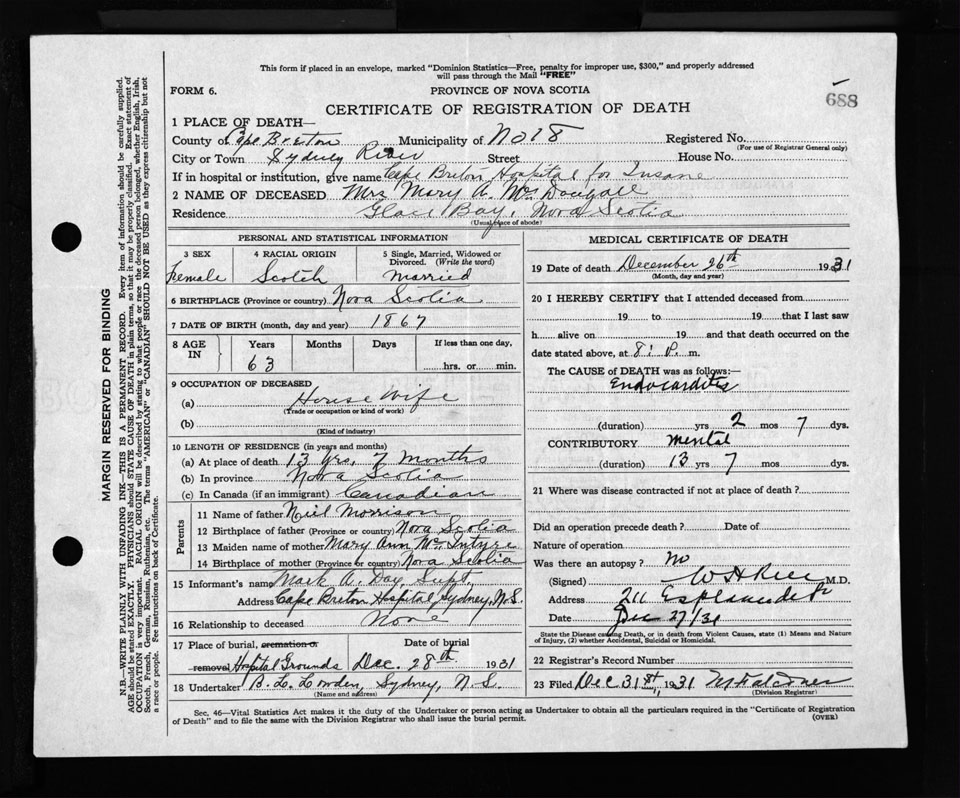 This form if placed in an envelope, marked "Dominion Statistics—Free, penalty for improper use, $300," and properly addressed
will pass through the Mail "FREE"
FORM 6.
PROVINCE OF NOVA SCOTIA
688
CERTIFICATE OF REGISTRATION OF DEATH
1 PLACE OF DEATH—
County of Cape Breton Municipality of No 18 Registered No.
(For use of Registrar General only)
City or Town Sydney River Street House No.
If in hospital or institution, give name Cape Breton Hospital for Insane
2 NAME OF DECEASED Mrs Mary A. McDougall
Residence Glace Bay, Nova Scotia
(Usual place of abode)
PERSONAL AND STATISTICAL INFORMATION
3 SEX 4 RACIAL ORIGIN 5 Single, Married, Widowed or
Divorced. (Write the word)
Female Scotch Married
6 BIRTHPLACE (Province or country) Nova Scotia
7 DATE OF BIRTH (month, day and year) 1867
8 AGE IN Years Months Days If less than one day,
63 hrs. or min.
9 OCCUPATION OF DECEASED
(a) House Wife
(Trade or occupation or kind of work)
(b)
(Kind of industry)
10 LENGTH OF RESIDENCE (in years and months)
(a) At place of death 13 yrs, 7 months
(b) In province Nova Scotia
(c) In Canada (if an immigrant) Canadian
Parents
11 Name of father Neil Morrison
12 Birthplace of father (Province or country) Nova Scotia
13 Maiden name of mother Mary Ann McIntyre
14 Birthplace of mother (Province or country) Nova Scotia
15 Informant's name Mark A. Day, Supt,
Address Cape Breton Hospital, Sydney, N.S.
16 Relationship to deceased None
17 Place of burial, cremation or Date of burial
removal Hospital Grounds Dec. 28th 1931
18 Undertaker B. L. Lowden, Sydney, N.S.
(Name and address)
MEDICAL CERTIFICATE OF DEATH
19 Date of death December 26th 1931
(Month, day and year)
20 I HEREBY CERTIFY that I attended deceased from
19 to 19 that I last saw
h alive on 19 and that death occurred on the
date stated above, at 8: P. m.
The CAUSE of DEATH was as follows:—
Endocarditis
(duration) yrs 2 mos 7 dys.
CONTRIBUTORY Mental
(duration) 13 yrs 7 mos dys.
21 Where was disease contracted if not at place of death?
Did an operation precede death? Date of
Nature of operation
Was there an autopsy? No
(Signed) W H Rice M.D.
Address 211 Esplanade
Date Dec 27/31
State the Disease causing Death, or in death from Violent Causes, state (1) Means and Nature
of Injury, (2) whether Accidental, Suicidal or Homicidal.
22 Registrar's Record Number
23 Filed Dec 31st, 1931
(Division Registrar)
Sec. 46—Vital Statistics Act makes it the duty of the Undertaker or person acting as Undertaker to obtain all the particulars required in the "Certificate of Registration
of Death" and to file the same with the Division Registrar who shall issue the burial permit.
(OVER)
MARGIN RESERVED FOR BINDING
N.B.—WRITE PLAINLY WITH UNFADING INK—THIS IS A PERMANENT RECORD. Every item of information should be carefully supplied.
AGE should be stated EXACTLY. PHYSICIANS should STATE CAUSE OF DEATH in plain terms, so that it may be properly classified. Exact statement of
OCCUPATION is very important. RACIAL ORIGIN will be described by stating to what people or race the deceased person belonged, whether English, Irish,
Scotch, French, German, Russian, Ruthenian, etc. The terms "AMERICAN" or "CANADIAN" SHOULD NOT BE USED as they express citizenship but not
a race or people. See instructions on back of Certificate.